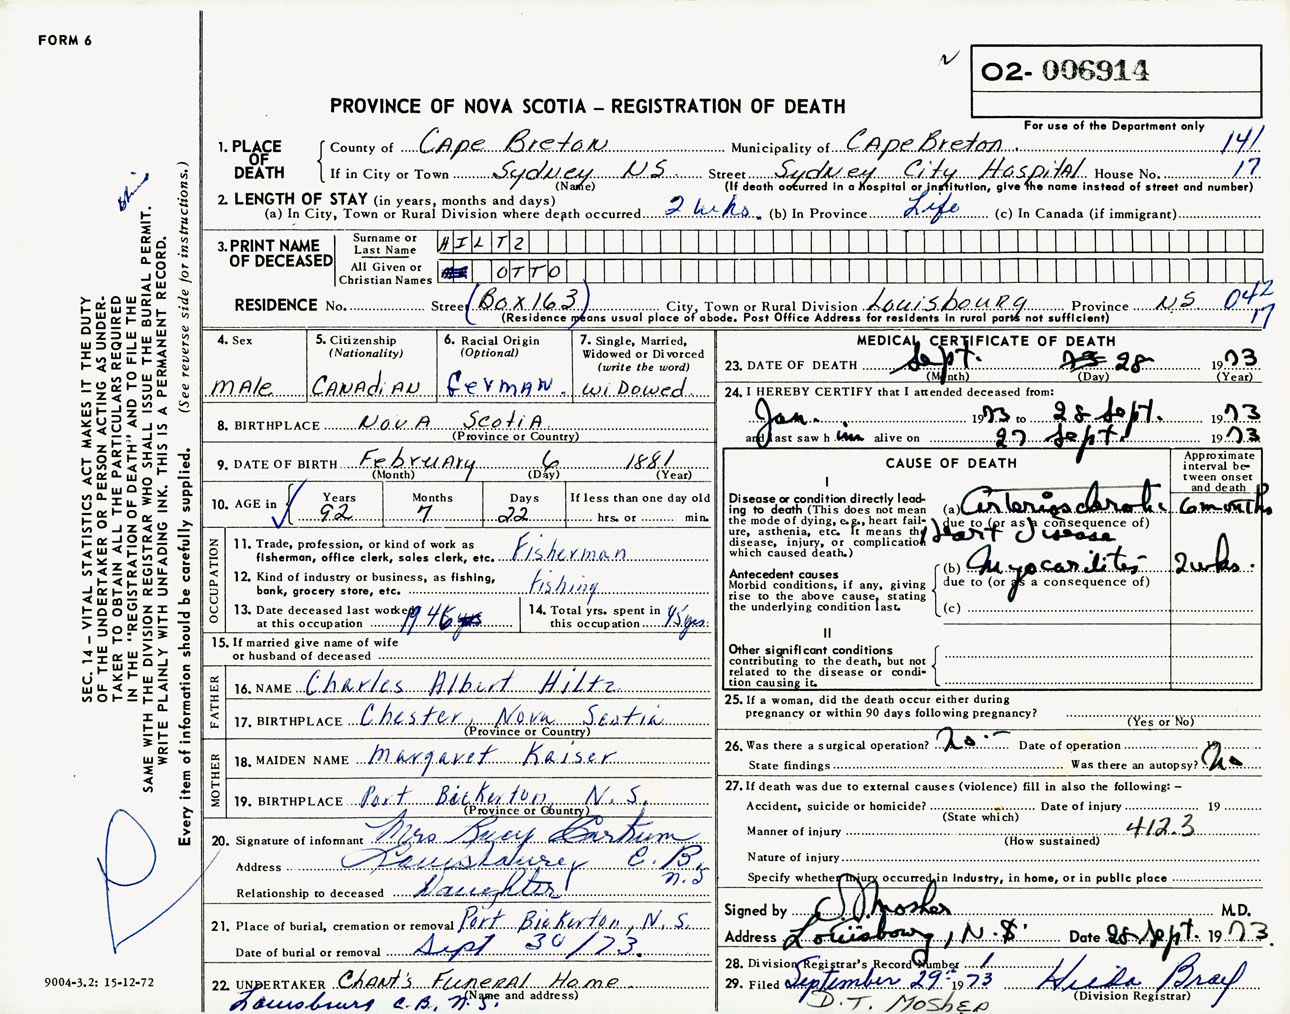 FORM 6
O2- 006914
PROVINCE OF NOVA SCOTIA – REGISTRATION OF DEATH
For use of the Department only
1. PLACE OF DEATH
County of Cape Breton Municipality of Cape Breton 141
If in City or Town Sydney N S Street Sydney City Hospital House No. 17
(Name) (If death occurred in a hospital or institution, give the name instead of street and number)
2. LENGTH OF STAY (in years, months and days)
(a) In City, Town or Rural Division where death occurred 2 wks. (b) In Province Life (c) In Canada (if immigrant)
3. PRINT NAME OF DECEASED
Surname or Last Name HILTZ
All Given or Christian Names OTTO
RESIDENCE No. Street (Box 163) City, Town or Rural Division Louisbourg Province N.S. 042 17
(Residence means usual place of abode. Post Office Address for residents in rural parts not sufficient)
4. Sex
male
5. Citizenship
(Nationality)
CANADIAN
6. Racial Origin
(Optional)
German.
7. Single, Married, Widowed or Divorced
(write the word)
widowed
8. BIRTHPLACE Nova Scotia
(Province or Country)
9. DATE OF BIRTH February 6 1881
(Month) (Day) (Year)
10. AGE in
Years Months Days If less than one day old
92 7 22 hrs. or min.
OCCUPATION
11. Trade, profession, or kind of work as fisherman, office clerk, sales clerk, etc. Fisherman
12. Kind of industry or business, as fishing, bank, grocery store, etc. Fishing
13. Date deceased last worked at this occupation 1946
14. Total yrs. spent in this occupation 45 yrs.
15. If married give name of wife
or husband of deceased
FATHER
16. NAME Charles Albert Hiltz
17. BIRTHPLACE Chester, Nova Scotia
(Province or Country)
MOTHER
18. MAIDEN NAME Margaret Kaiser
19. BIRTHPLACE Port Bickerton, N.S.
(Province or Country)
20. Signature of informant Mrs
Address C. B. N.S
Relationship to deceased Daughter
21. Place of burial, cremation or removal Port Bickerton, N.S.
Date of burial or removal Sept 30/73.
22. UNDERTAKER Chant's Funeral Home
(Name and address)
Louisbourg C.B. N.S.
MEDICAL CERTIFICATE OF DEATH
23. DATE OF DEATH Sept. 28 1973
(Month) (Day) (Year)
24. I HEREBY CERTIFY that I attended deceased from:
Jan. 1973 to 28 Sept. 1973
and last saw h im alive on 27 Sept. 1973
CAUSE OF DEATH
Approximate interval between onset and death
I
Disease or condition directly lead-
ing to death (This does not mean
the mode of dying, e.g., heart fail-
ure, asthenia, etc. It means the
disease, injury, or complication
which caused death.)
(a) Arteriosclerotic 6 months
due to (or as a consequence of)
Heart Disease
Antecedent causes
Morbid conditions, if any, giving
rise to the above cause, stating
the underlying condition last.
(b) Myocarditis 2 wks.
due to (or as a consequence of)
(c)
II
Other significant conditions
contributing to the death, but not
related to the disease or condi-
tion causing it.
25. If a woman, did the death occur either during
pregnancy or within 90 days following pregnancy?
(Yes or No)
26. Was there a surgical operation? No. Date of operation
State findings Was there an autopsy? No
27. If death was due to external causes (violence) fill in also the following: –
Accident, suicide or homicide? Date of injury 19
(State which)
Manner of injury 412.3
(How sustained)
Nature of injury
Specify whether injury occurred in industry, in home, or in public place
Signed by D Mosher M.D.
Address Louisbourg, N.S. Date 28 Sept. 1973.
28. Division Registrar's Record Number 1
29. Filed September 29th 1973 Hilda
(Division Registrar)
D.T. MOSHER
SEC. 14 – VITAL STATISTICS ACT MAKES IT THE DUTY
OF THE UNDERTAKER OR PERSON ACTING AS UNDER-
TAKER TO OBTAIN ALL THE PARTICULARS REQUIRED
IN THE "REGISTRATION OF DEATH" AND TO FILE THE
SAME WITH THE DIVISION REGISTRAR WHO SHALL ISSUE THE BURIAL PERMIT.
WRITE PLAINLY WITH UNFADING INK. THIS IS A PERMANENT RECORD.
Every item of information should be carefully supplied. (See reverse side for instructions.)
9004-3.2: 15-12-72